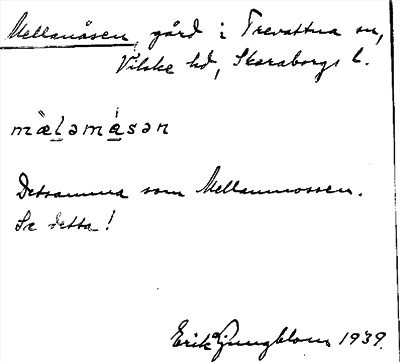 Mellanåsen, gård i Trevattna sn,
Vilske hd, Skaraborgs l.
mæ̀l̲əmá̲sən
Detsamma som Mellanmossen.
Se detta!
Erik Ljungblom 1939.